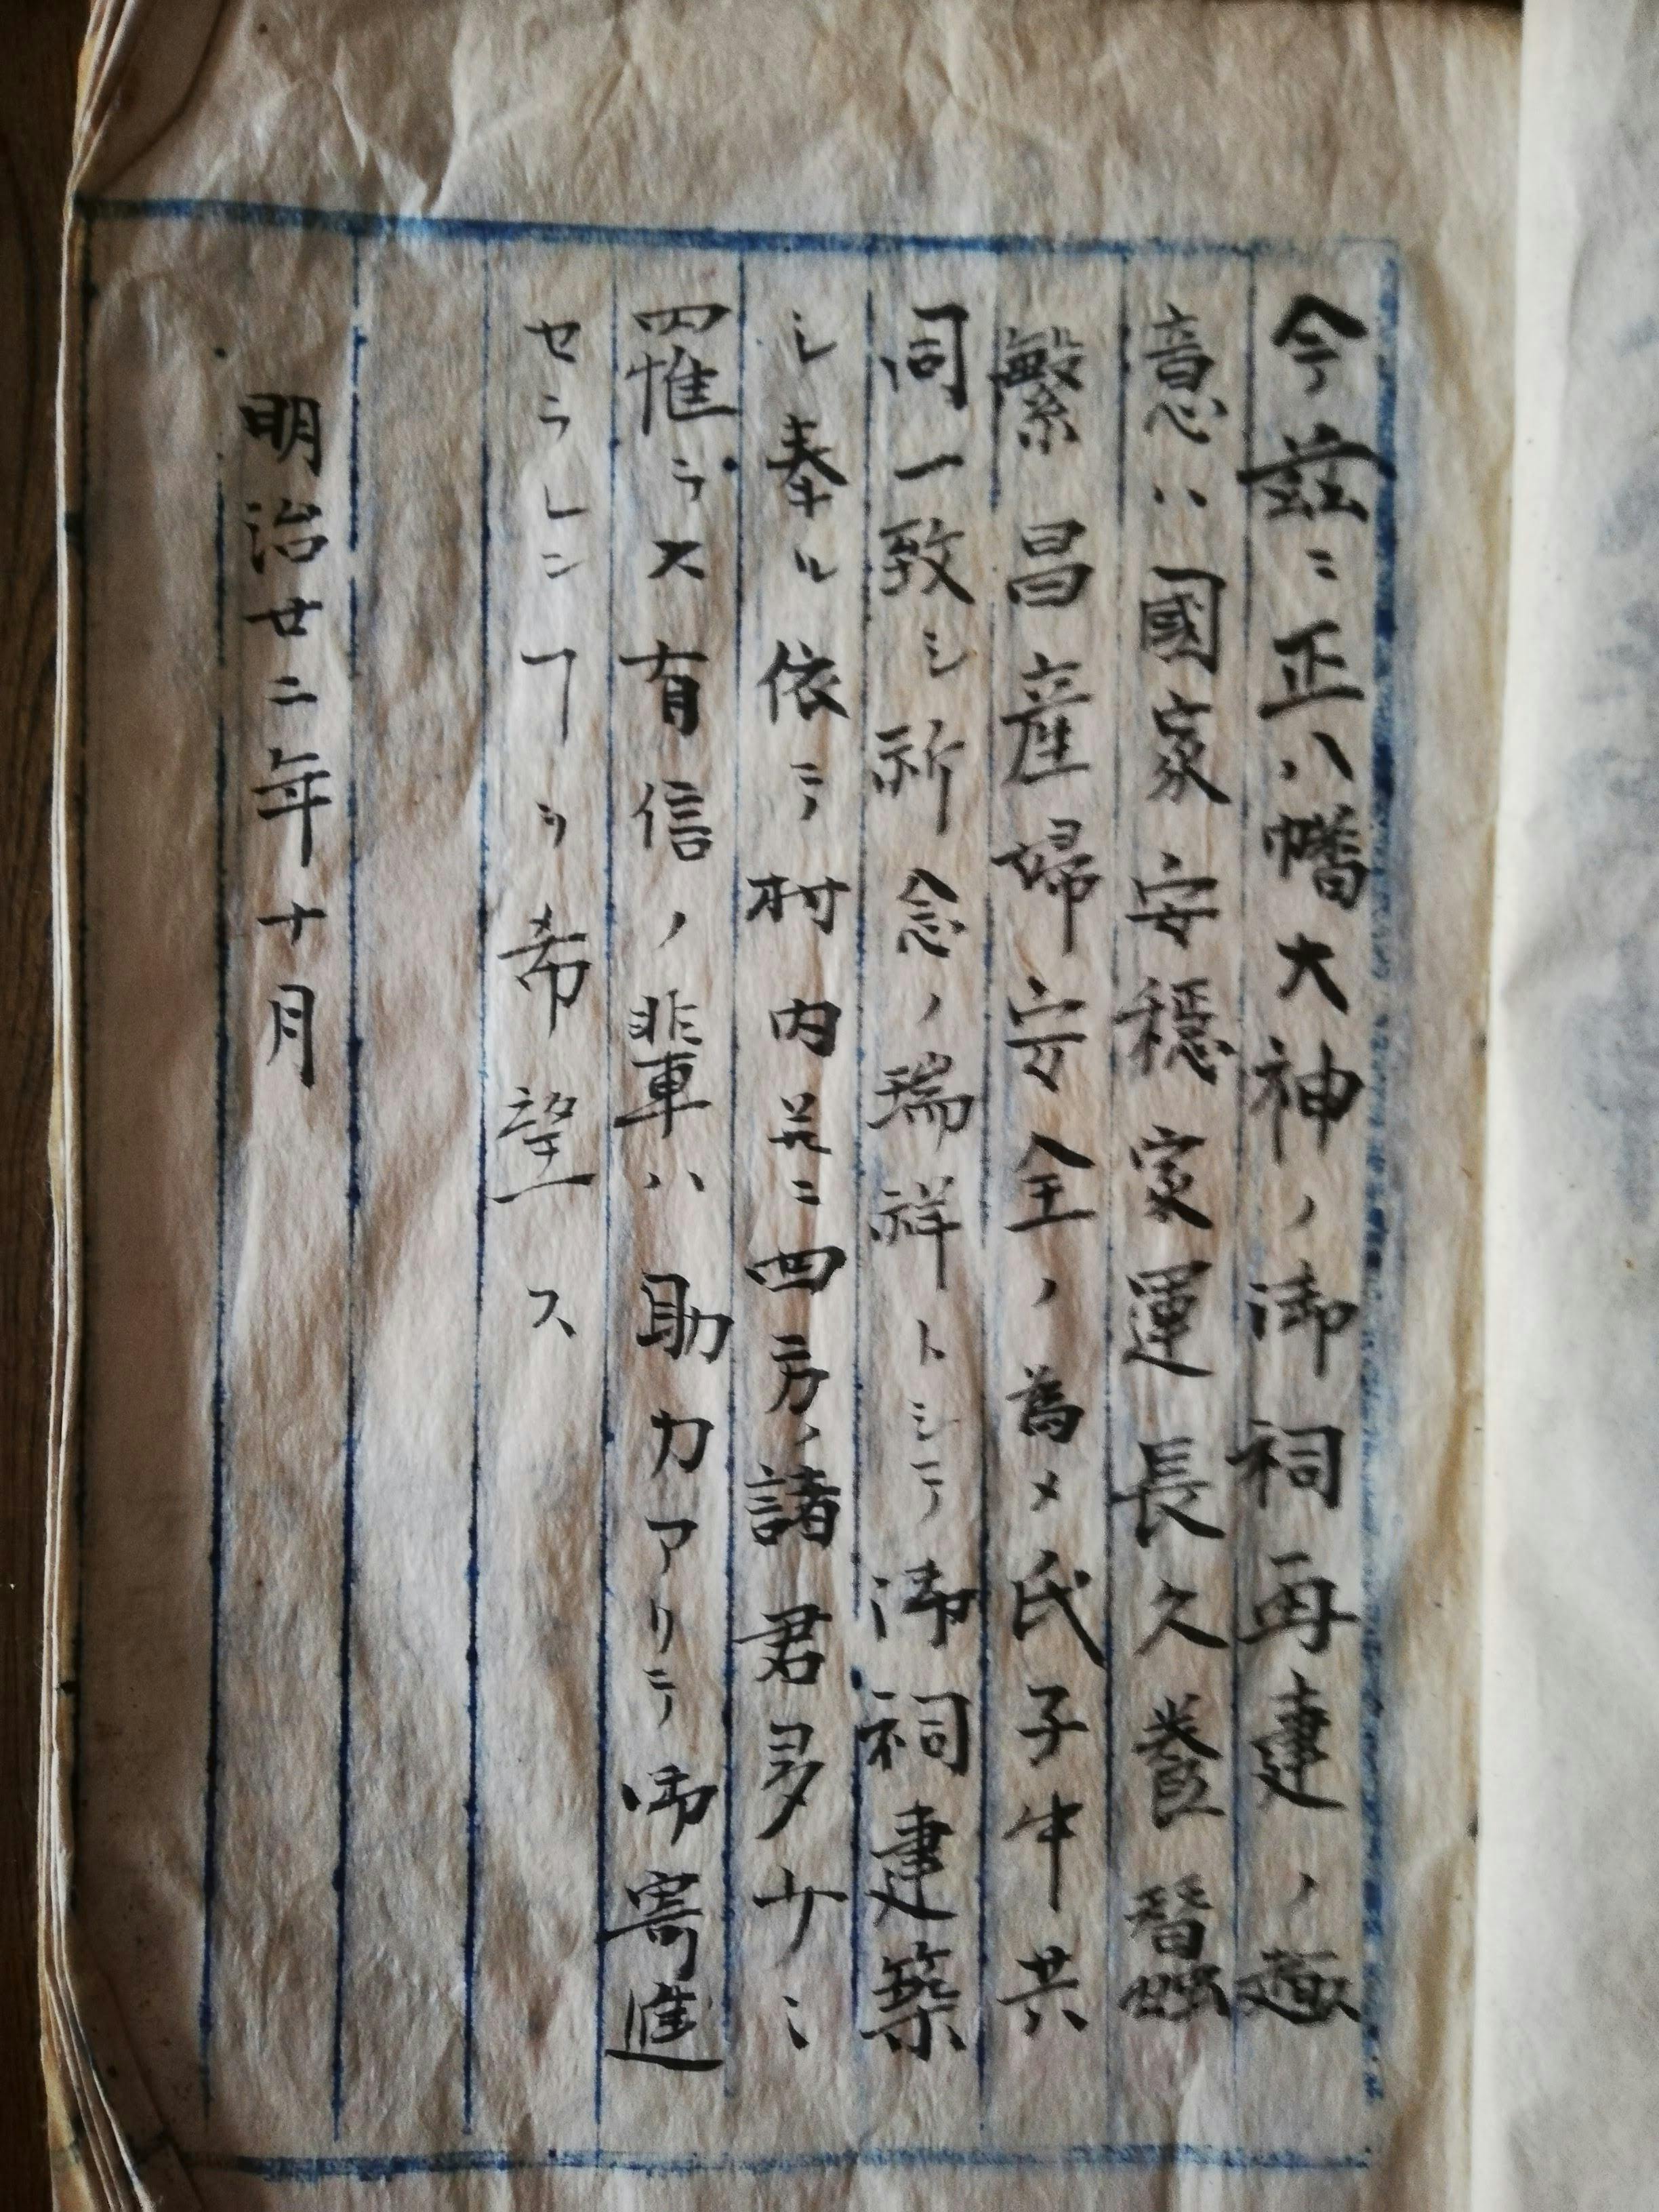 今茲ニ正八幡大神ノ御祠再建ノ趣
意ハ國家安穏家運長久養蠶
繁昌産婦安全ノ為メ氏子中共
同一致シ祈念ノ瑞祥トシテ御祠建築
シ奉ル依テ村内並ニ四方ノ諸君多少ニ
罹ラス有信ノ輩ハ助力アリテ御寄進
セラレンヿヲ希望ス
明治廿二年十月